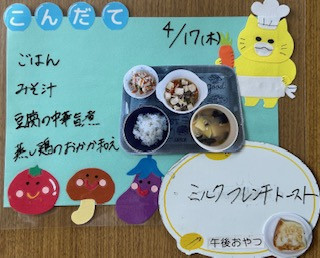 こんだて
4/17(木)
ごはん
みそ汁
豆腐の中華旨煮
蒸し鶏のおかか和え
ミルクフレンチトースト
午後おやつ